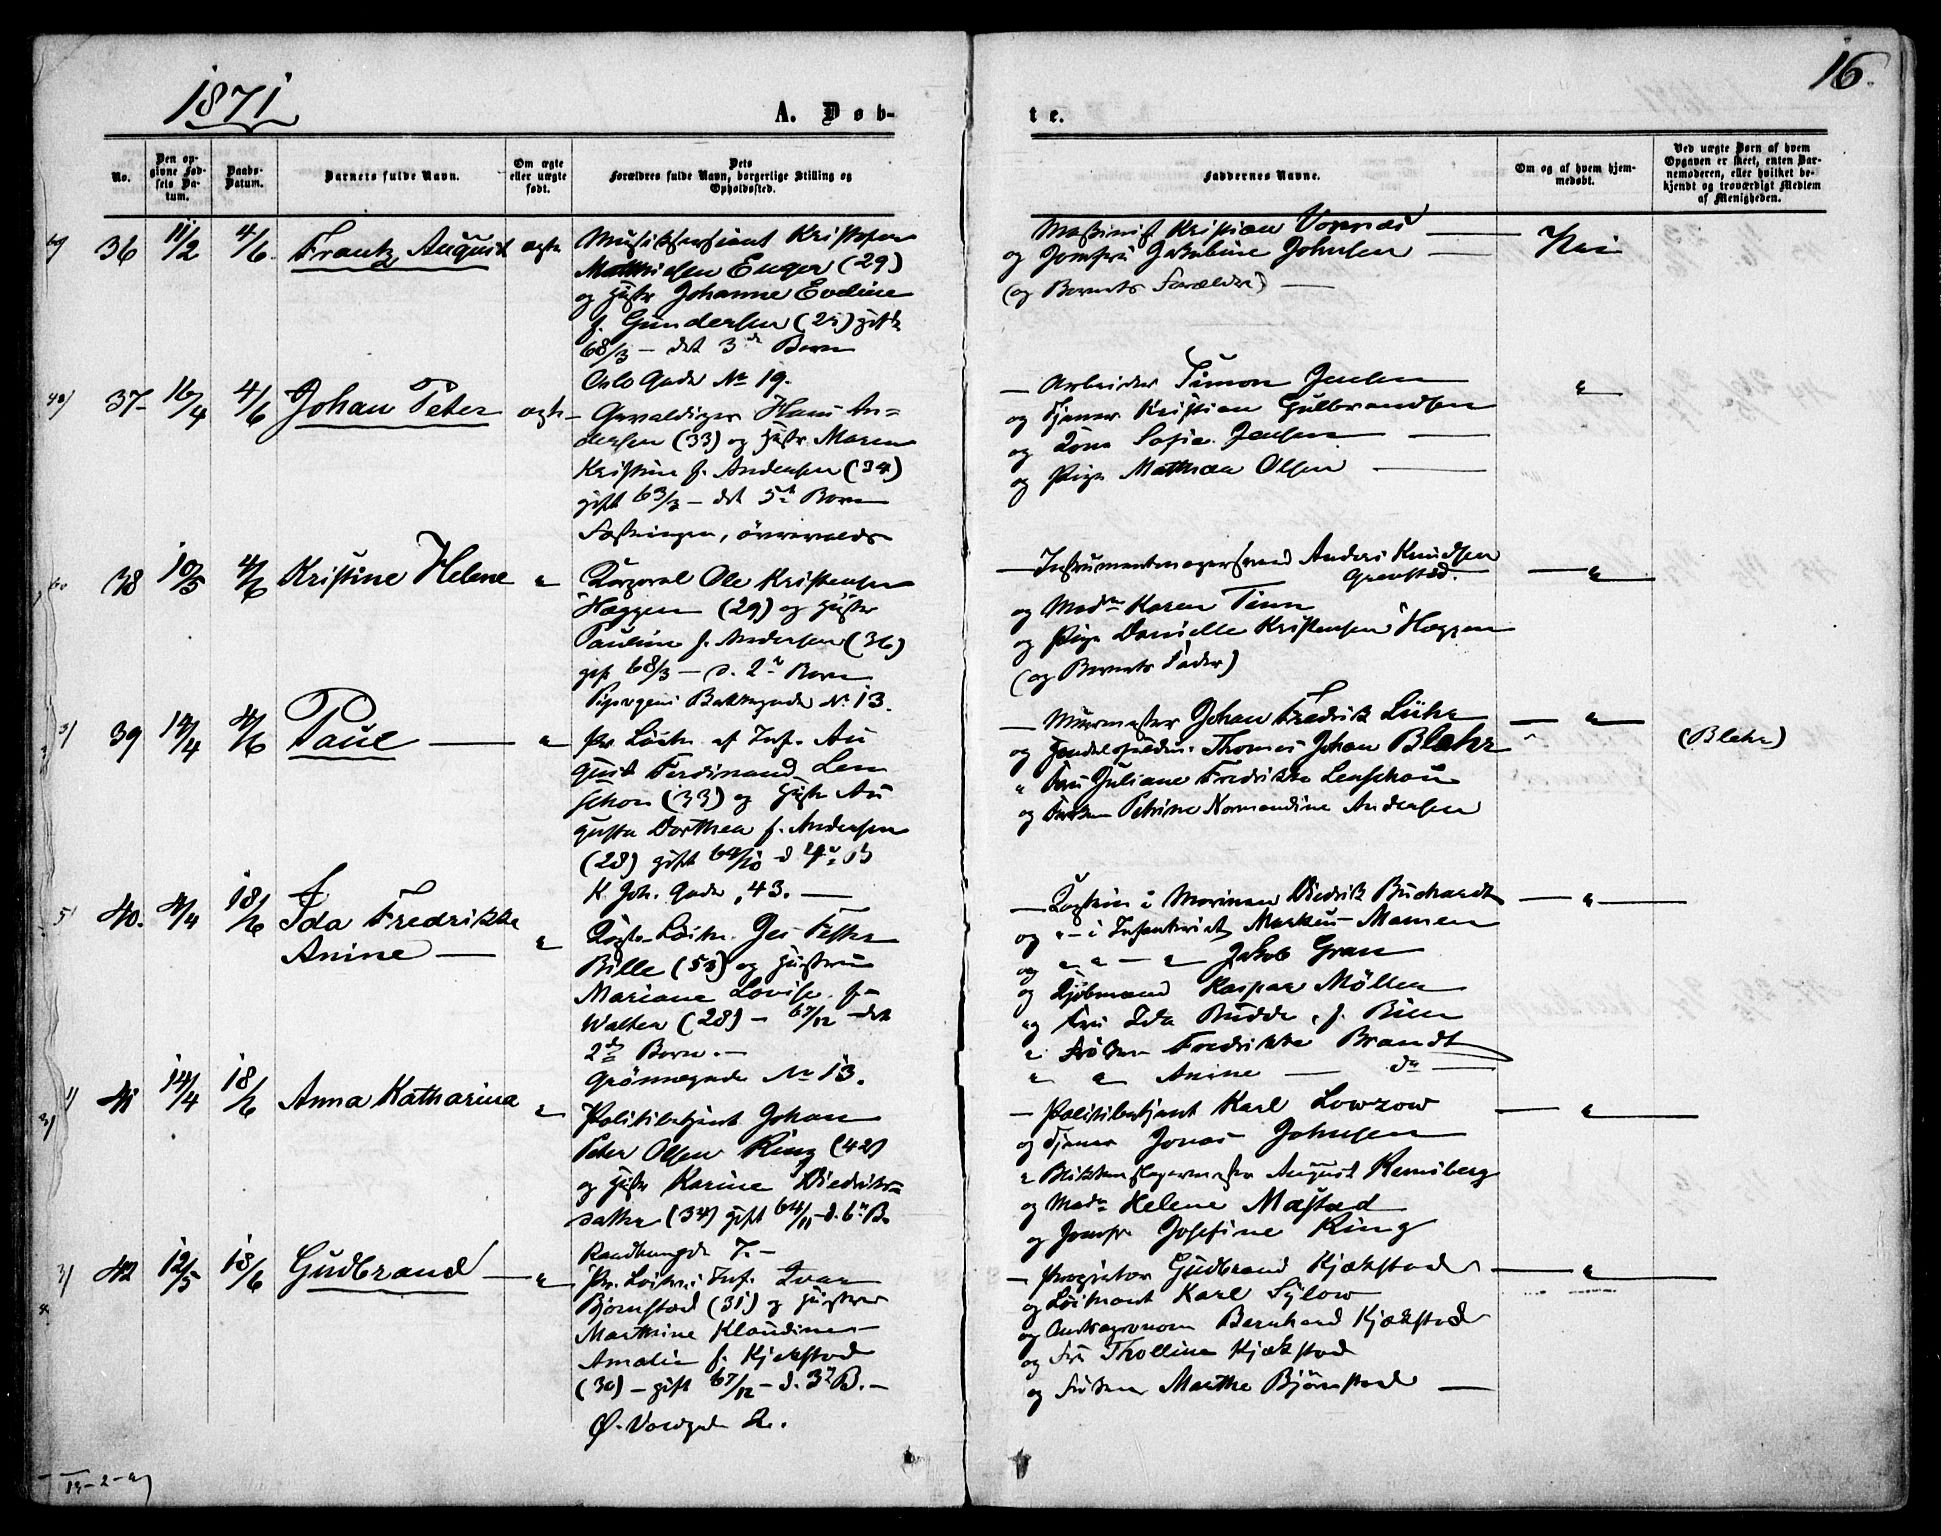 1871
16.
A. Døb-
te.
No.
Den op-
givne Fød-
sels Da-
tum.
Daabs-
Datum.
Barnets fulde Navn.
Om ægte
eller uægte
født.
Dets
Forældres fulde Navn, borgerlige Stilling og
Opholdssted.
Faddernes Navne.
Om og af hvem hjem-
medøbt.
Ved uægte Børn af hvem
Opgaven er skeet, enten Bar-
nemoderen, eller hvilket be-
kjendt og troværdigt Medlem
af Menigheden.
36 11/2 4/6. Frantz August ægte
Kristofer
Mathiesen Enger (29)
og Hustr Johanne Eveline
f. Gundersen (21) gift
68/3 – det 3de Barn
Oslo Gade No 19.
Maskinist Kristian
og Jomfru Jakobine Johnsen
(og Barnets Forældre)
Nei
37- 16/4 4/6 Johan Peter ægte
Gevaldiger Hans An-
dersen (33) og Hustr. Maren
Kristine f. Andersen (34)
gift 63/3 – det 5te Barn
Fæstningen,
– Arbeider Simon Jensen
og Tjener Kristian Gulbrandsen
og Kone Sofie Jensen
og Pige Mathea Olsen
"
38 10/5 4/6 Kristine Helene "
Korporal Ole Kristensen
Haggen (29) og Hustru
Pauline f. Andersen (36)
gift 68/3 – d. 2t Barn
Bakkegade No 13.
– Instrumentmagersvend Anders Knudsen
Grenstad.
og Madm Karen
og Pige Danielle Kristensen Haggen
(og Barnets Fader)
"
39 14/4 4/6 Paul — "
Pr. Løitn. af Inf. Au
gust Ferdinand Len
schou (33) og Hustr Au
gusta Dorthea f. Andersen
(28) gift 64/10 d 4de B
K. Joh. Gade, 43. —
– Murmester Johan Fredrik Lühr
og Thomas Johan Blæhr
" Fru Juliane Fredrikke Lenschou
og Frøken Petrine Normandine Andersen
"
(Blæhr)
40. 4/4 18/6 Ida Fredrikke
Anine — "
Løitn.
Bille (53) og Hustru
Mariane Lovise f.
Walter (28) – 67/12 – det
2det Barn. –
Grønnegade No 13.
– Kaptein i Marinen Diedrik Buchardt
og " – i Infanteriet Markus Mamen
og " " – " Jakob Gran
og Kjøbmand Kaspar Möller
og Fru Ida Budde, f. Bille
" Frøken Fredrikke Brandt
" " Anine — do —
"
41 14/4 18/6 Anna Katharina "
Politibetjent Johan
Peter Olsen Ring (42)
og Hustr Karine Diedriks-
datter (34) gift 64/11 – d. 6te B.
7. –
– Politibetjent Karl Lowzow
og Tjener Jonas Johnsen
" Blikkenslagermester August Remsberg
og Madm Helene Mæstad
og Jomfr Josefine Ring
"
42 12/5 18/6 Gudbrand — "
Pr. Løitn i Inf. Ivar
Bjørnstad (31) og Hustru
Marthine Klaudine
Amalie f. Kjekstad
(30) – gift 67/12 – d. 3die B. –
Ø. Voldgade 2.
– Proprietær Gudbrand Kjækstad
og Løitnant Karl Sylow
og Amtsagronom Bernhard Kjækstad
og Fru Thollina Kjækstad
og Frøken Marthe Bjørnstad —
"